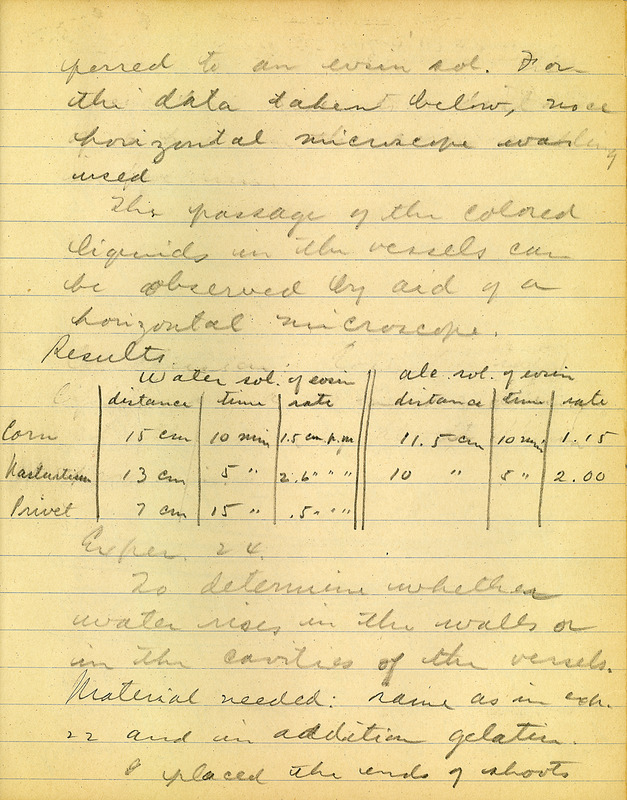 ferred to an eosin sol. For
the data taken below, no
horizontal microscope was
used
The passage of the colored
liquids in the vessels can
be observed by aid of a
horizontal microscope.
Results
Water sol. of eosin alc. sol. of eosin
distance time rate distance time rate
Corn 15 cm 10 min 1.5 cm p.m 11.5 cm 10 min 1.15
Nasturtium 13 cm 5 " 2.6 " " " 10 " 5 " 2.00
Privet 7 cm 15 " .5 " " "
Exper. 24.
To determine whether
water rises in the walls or
in the cavities of the vessels.
Material needed: same as in exp.
22 and in addition gelatin.
I placed the ends of shoots